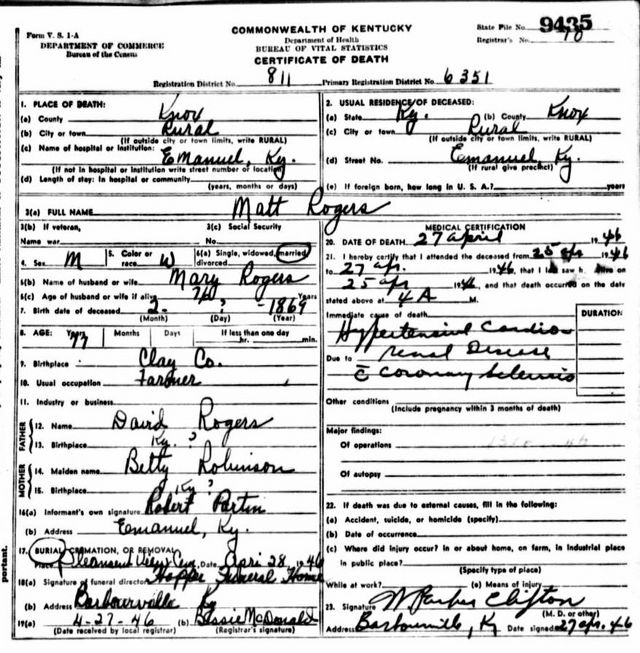 Form V. S. 1-A
DEPARTMENT OF COMMERCE
Bureau of the Census
COMMONWEALTH OF KENTUCKY
Department of Health
BUREAU OF VITAL STATISTICS
CERTIFICATE OF DEATH
State File No. 9435
Registrar's No. 70
Registration District No. 811 Primary Registration District No. 6351
1. PLACE OF DEATH:
(a) County Knox
(b) City or town Rural
(If outside city or town limits, write RURAL)
(c) Name of hospital or institution: Emanuel, Ky.
(If not in hospital or institution write street number or location)
(d) Length of stay: In hospital or community
(years, months or days)
2. USUAL RESIDENCE OF DECEASED:
(a) State Ky. (b) County Knox
(c) City or town Rural
(If outside city or town limits, write RURAL)
(d) Street No. Emanuel, Ky.
(If rural give precinct)
(e) If foreign born, how long in U. S. A.? years
3(a) FULL NAME Matt Rogers
3(b) If veteran, Name war 3(c) Social Security No.
4. Sex M 5. Color or race W 6(a) Single, widowed, married, divorced
6(b) Name of husband or wife Mary Rogers
6(c) Age of husband or wife if alive 70 Years
7. Birth date of deceased 2 - ? - 1869
(Month) (Day) (Year)
8. AGE: Years 77 Months Days If less than one day hr. min.
9. Birthplace Clay Co.
10. Usual occupation Farmer
11. Industry or business
FATHER
12. Name David Rogers
13. Birthplace Ky. ?
MOTHER
14. Maiden name Betty Robinson
15. Birthplace Ky ?
16(a) Informant's own signature Robert Partin
(b) Address Emanuel, Ky.
17. BURIAL, CREMATION, OR REMOVAL
Place Pleansent View Cem, Date April 28, 1946
18(a) Signature of funeral director Hopper Funeral Home
(b) Address Barbourville Ky
19(a) 4-27-46 (b) Bessie McDonald
(Date received by local registrar) (Registrar's signature)
MEDICAL CERTIFICATION
20. DATE OF DEATH 27 April 1946
21. I hereby certify that I attended the deceased from 25 apr 1946
to 27 apr. 1946, that I last saw h alive on
25 apr 1946, and that death occurred on the date
stated above at 4 A M.
Immediate cause of death DURATION
Hypertensive Cardio
Due to renal Disease
c̄ coronary Sclerosis
Other conditions
(Include pregnancy within 3 months of death)
Major findings:
Of operations
Of autopsy
22. If death was due to external causes, fill in the following:
(a) Accident, suicide, or homicide (specify)
(b) Date of occurrence
(c) Where did injury occur? In or about home, on farm, in industrial place
in public place?
(Specify type of place)
While at work? (e) Means of injury
23. Signature Parker Clifton
(M. D. or other)
Address Barbourville, Ky Date signed 27 apr. 46
portant.